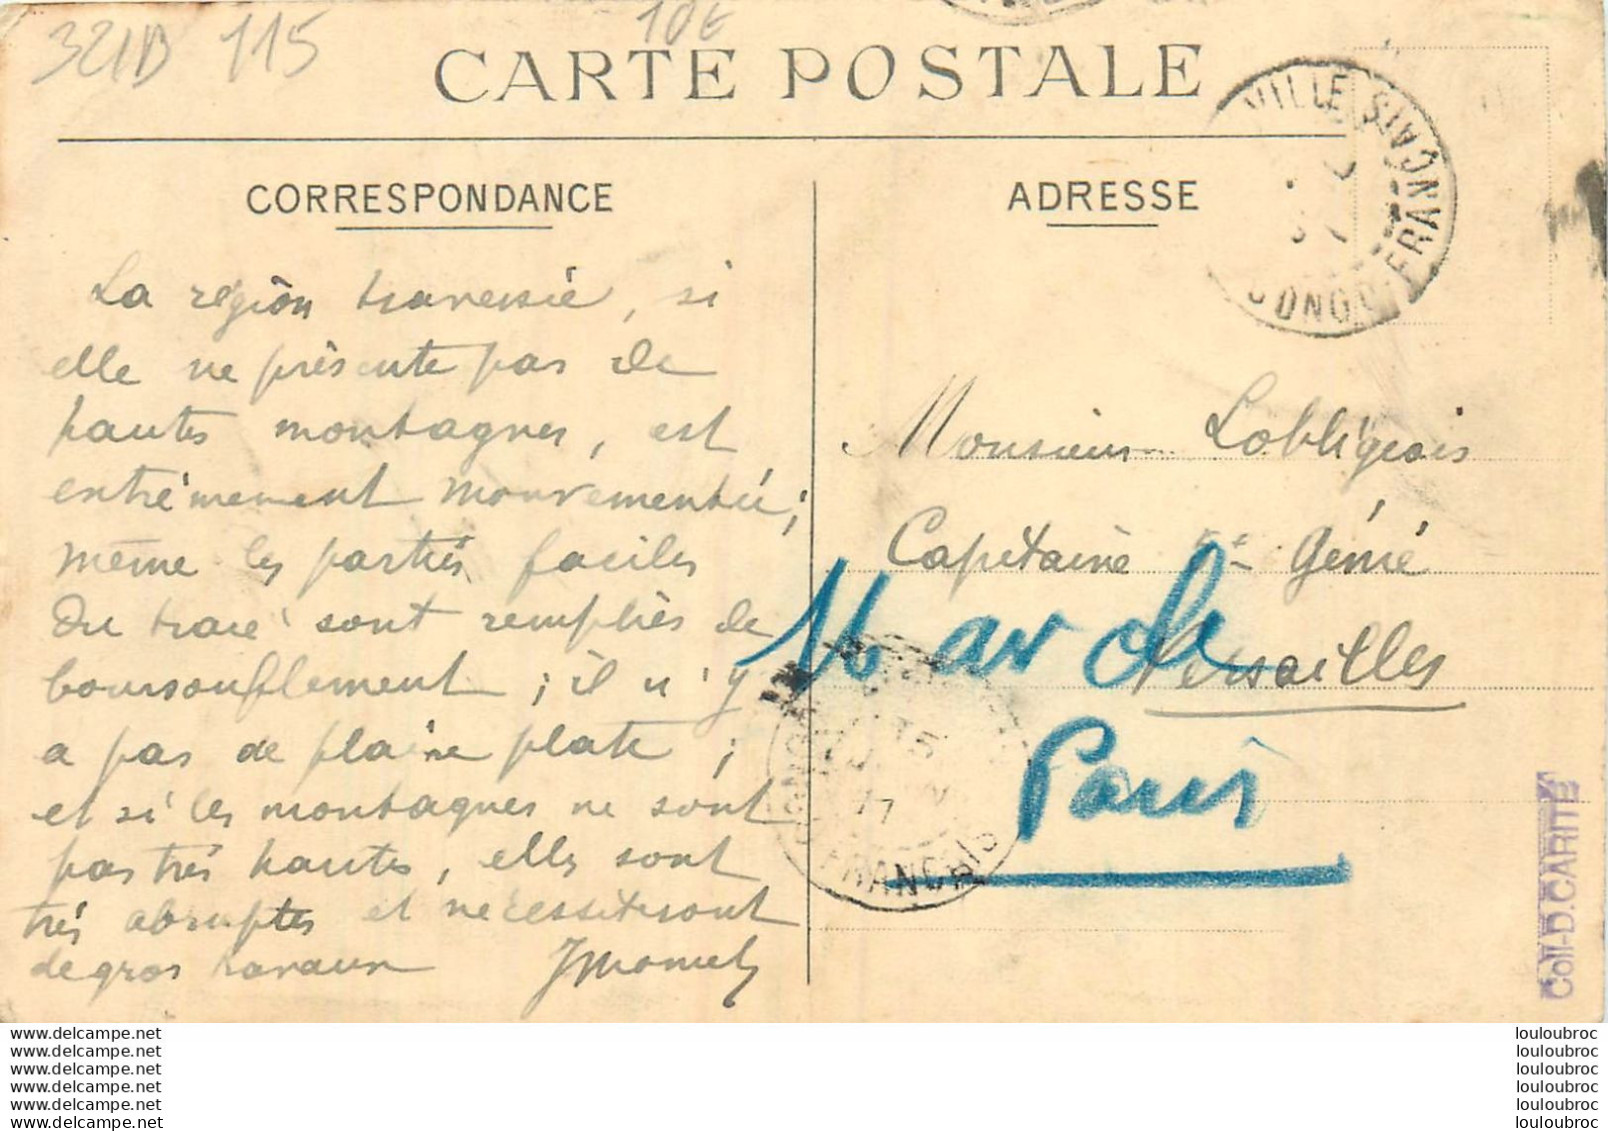 321B 115
10€
CARTE POSTALE
VILLE
CONGO-FRANÇAIS
CORRESPONDANCE
La région traversée, si
elle ne présente pas de
hautes montagnes, est
extrêmement mouvementée ;
même les parties faciles
du tracé sont remplies de
boursouflement ; il n'y
a pas de plaine plate ;
et si les montagnes ne sont
pas très hautes, elles sont
très abruptes et nécessiteront
de gros travaux
ADRESSE
Monsieur Lobligeois
Capitaine Génie
16 av de
Versailles
Paris
FRANCAIS
Coll-D.CARITE
www.delcampe.net
www.delcampe.net
www.delcampe.net
www.delcampe.net
www.delcampe.net
www.delcampe.net
louloubroc
louloubroc
louloubroc
louloubroc
louloubroc
louloubroc